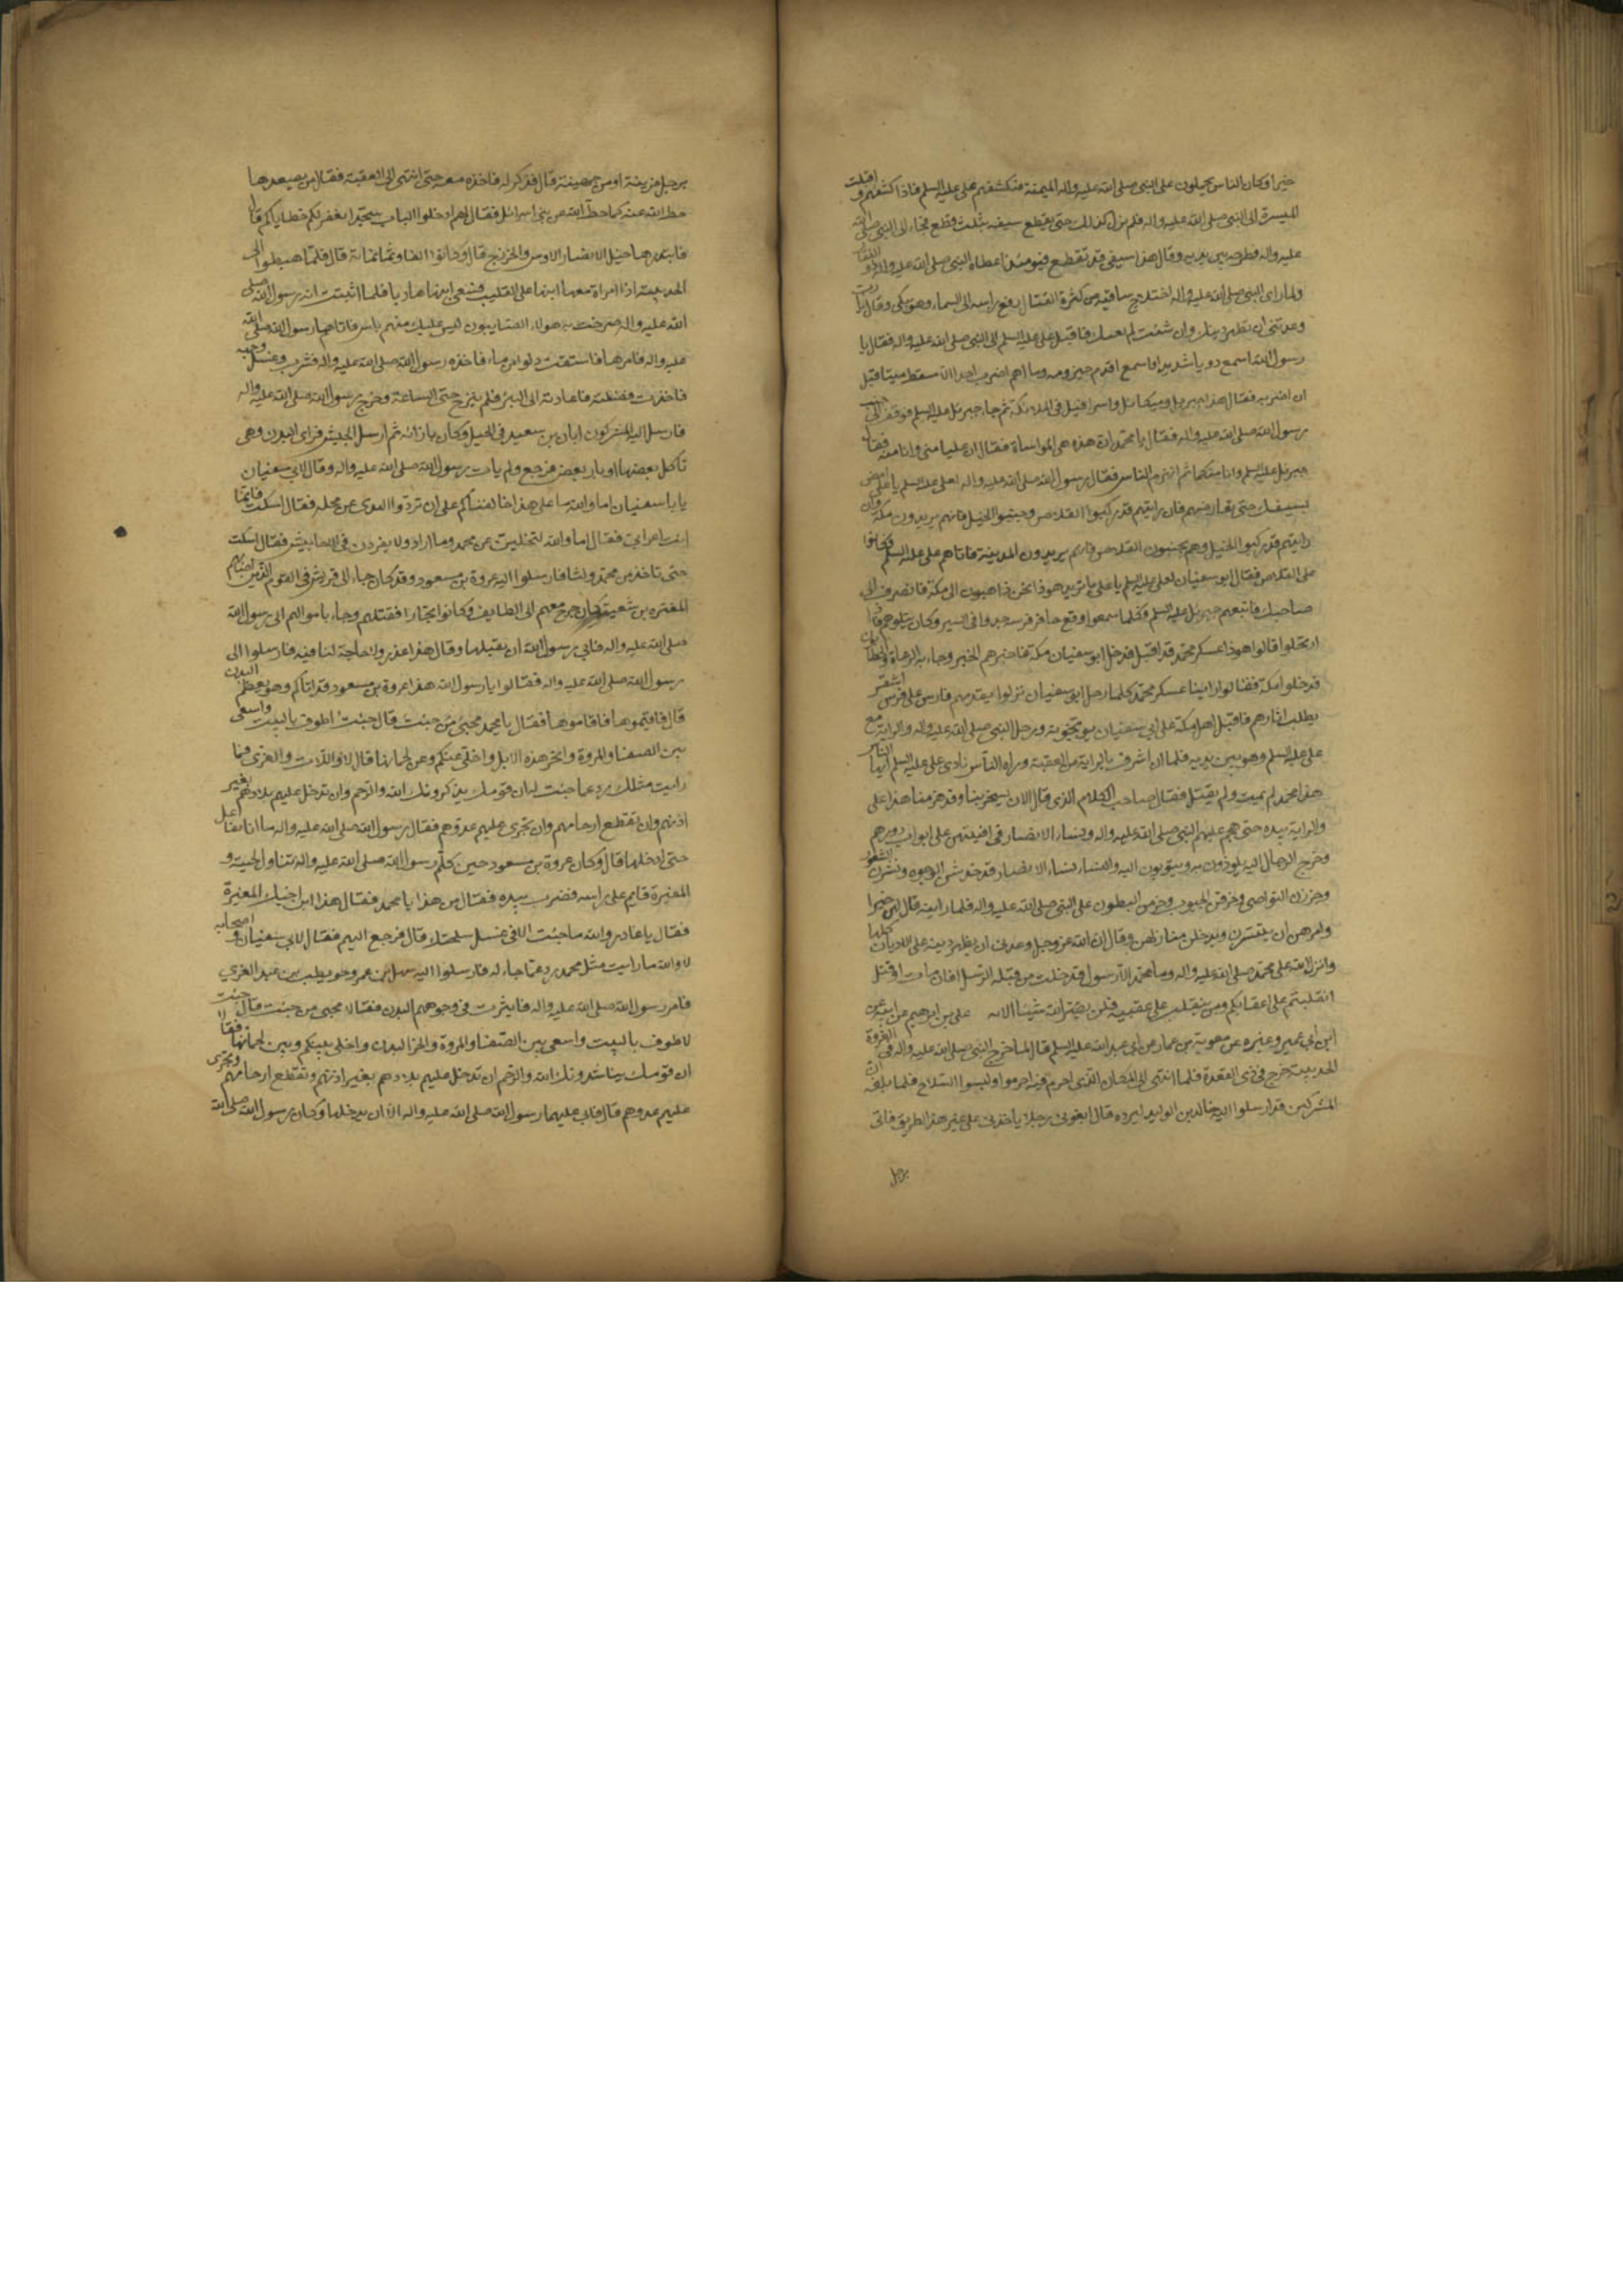 خيرا وكان الناس يحملون على النبي صلى الله عليه واله الميمنة فيكشفهم على عليه السلم فاذا كشفهم اقبلت
الميسرة الى النبي صلى الله عليه واله فلم يزل كذلك حتى تقطع سيفه بثلث قطع فجاء الى النبي صلى الله
عليه واله فطرحه بين يديه وقال هذا سيفي قد تقطع فيومئذ اعطاه النبي صلى الله عليه واله ذو الفقار
ولما راى النبي صلى الله عليه واله اختلاج ساقيه من كثرة القتال رفع راسه الى السماء وهو يبكي وقال يا رب
وعدتني ان تظهر دينك وان شئت لم يعيك فاقبل على عليه السلم الى النبي صلى الله عليه واله فقال يا
رسول الله اسمع دويا شديدا واسمع اقدم حيزوم وما اهم اضرب احدا الا سقط ميتا قبل
ان اضربه فقال هذا جبرئيل وميكائيل واسرافيل في الملائكة ثم جاء جبرئيل عليه السلم فوقف الى جنب
رسول الله صلى الله عليه واله فقال يا محمد ان هذه هي المواساة فقال ان عليا مني وانا منه فقال
جبرئيل عليه السلم وانا منكما ثم انهزم الناس فقال رسول الله صلى الله عليه واله لعلى عليه السلم يا على امض
بسيفك حتى تعارضهم فان رايتهم قد ركبوا القلاص وجنبوا الخيل فانهم يريدون مكة وان
رايتهم قد ركبوا الخيل وهم يجنبون القلاص فانهم يريدون المدينة فاتاهم على عليه السلم فكانوا
على القلاص فقال ابو سفيان لعلى عليه السلم يا على ما تريد هوذا نحن ذاهبون الى مكة فانصرف الى
صاحبك فاتبعهم جبرئيل عليه السلم فكلما سمعوا وقع حافر فرسه جدوا في السير وكان يتلوهم فاذا
ارتحلوا قالوا هوذا عسكر محمد قد اقبل فدخل ابو سفيان مكة فاخبرهم الخبر وجاء الرعاة والحطابون
فدخلوا مكة فقالوا راينا عسكر محمد كلما رحل ابو سفيان نزلوا يقدمهم فارس على فرس اشقر
يطلب اثارهم فاقبل اهل مكة على ابي سفيان يوبخونه ورحل النبي صلى الله عليه واله والراية مع
على عليه السلم وهو بين يديه فلما ان اشرف بالراية من العقبة وراه الناس نادى على عليه السلم ايها الناس
هذا محمد لم يمت ولم يقتل فقال صاحب الكلام الذي قال الان يسخر بنا وقد هزمنا هذا على
والراية بيده حتى هجم عليهم النبي صلى الله عليه واله ونساء الانصار في افنيتهن على ابواب دورهم
وخرج الرجال اليه يلوذون به ويثوبون اليه والنساء نساء الانصار قد خدشن الوجوه ونشرن الشعور
وجززن النواصي وخرقن الجيوب وحزمن البطون على النبي صلى الله عليه واله فلما راينه قال لهن خيرا
وامرهن ان يتسترن ويدخلن منازلهن وقال ان الله عز وجل وعدني ان يظهر دينه على الاديان كلها
وانزل الله على محمد صلى الله عليه واله وما محمد الا رسول قد خلت من قبله الرسل افان مات او قتل
انقلبتم على اعقابكم ومن ينقلب على عقبيه فلن يضر الله شيئا الاية على بن ابرهيم عن ابيه عن
ابن ابي عمير وغيره عن معوية بن عمار عن ابي عبد الله عليه السلم قال لما خرج النبي صلى الله عليه واله في غزوة
الحديبية خرج في ذي القعدة فلما انتهى الى المكان الذي احرم فيه احرموا ولبسوا السلاح فلما بلغه ان
المشركين قد ارسلوا اليه خالد بن الوليد ليرده قال ابغوني رجلا ياخذني على غير هذا الطريق فاتى
برجل
برجل من مزينة او من جهينة قال فذكر له فاخذه معه حتى انتهى الى العقبة فقال من يصعدها
حط الله عنه كما حط الله عن بني اسرائيل فقال لهم ادخلوا الباب سجدا نغفر لكم خطاياكم قال
فابتدرها خيل الانصار الاوس والخزرج قال وكانوا الفا وثمانمائة قال فلما هبطوا الى
الحديبية اذا امراة معها ابنها على القليب فسعى ابنها هاربا فلما اثبتت انه رسول الله صلى
الله عليه واله صرخت به هؤلاء الصابئون ليس عليك منهم باس فاتاها رسول الله صلى الله
عليه واله فامرها فاستقت دلوا من ماء فاخذه رسول الله صلى الله عليه واله فشرب وغسل وجهه
فاخذت فضلته فاعادته الى البئر فلم ينزح حتى الساعة وخرج رسول الله صلى الله عليه واله
فارسل اليه المشركون ابان بن سعيد في الخيل وكان بازائه ثم ارسل الجليس فراى البدن وهي
تاكل بعضها اوبار بعض فرجع ولم يات رسول الله صلى الله عليه واله وقال لابي سفيان
يا با سفيان اما والله ما على هذا خالفناكم على ان تردوا الهدى عن محله فقال اسكت فانما
انت اعرابي فقال اما والله لتخلين عن محمد وما اراد ولانفردن في الاحابيش فقال اسكت
حتى تاخذ من محمد ولثا فارسلوا اليه عروة بن مسعود وقد كان جاء الى قريش في القوم الذين اصابهم
المغيرة بن شعبة كان خرج معهم الى الطايف وكانوا تجارا فقتلهم وجاء باموالهم الى رسول الله
صلى الله عليه واله فابى رسول الله ان يقبلها وقال هذا غدر ولا حاجة لنا فيه فارسلوا الى
رسول الله صلى الله عليه واله فقالوا يا رسول الله هذا عروة بن مسعود قد اتاكم وهو يعظم البدن
قال فاقيموها فاقاموها فقال يا محمد مجئ من جئت قال جئت اطوف بالبيت واسعى
بين الصفا والمروة وانحر هذه الابل واخلى عنكم وعن لحمانها قال لا واللات والعزى فما
رايت مثلك رد عما جئت له ان قومك يذكرونك الله والرحم وان تدخل عليهم بلادهم بغير
اذنهم وان تقطع ارحامهم وان تجرى عليهم عدوهم فقال رسول الله صلى الله عليه واله ما انا بفاعل
حتى ادخلها قال وكان عروة بن مسعود حين كلم رسول الله صلى الله عليه واله تناول لحيته و
المغيرة قايم على راسه فضرب بيده فقال من هذا يا محمد فقال هذا ابن اخيك المغيرة
فقال يا غادر والله ما جئت الا في غسل سلحتك قال فرجع اليهم فقال لابي سفيان واصحابه
لا والله ما رايت مثل محمد رد عما جاء له فارسلوا اليه سهيل بن عمرو وحويطب بن عبد العزي
فامر رسول الله صلى الله عليه واله فاثيرت في وجوههم البدن فقالا مجئ من جئت قال جئت
لاطوف بالبيت واسعى بين الصفا والمروة وانحر البدن واخلى بينكم وبين لحمانها فقالا
ان قومك يناشدونك الله والرحم ان تدخل عليهم بلادهم بغير اذنهم وتقطع ارحامهم وتجرى
عليهم عدوهم قال فابى عليهما رسول الله صلى الله عليه واله الا ان يدخلها وكان رسول الله صلى الله